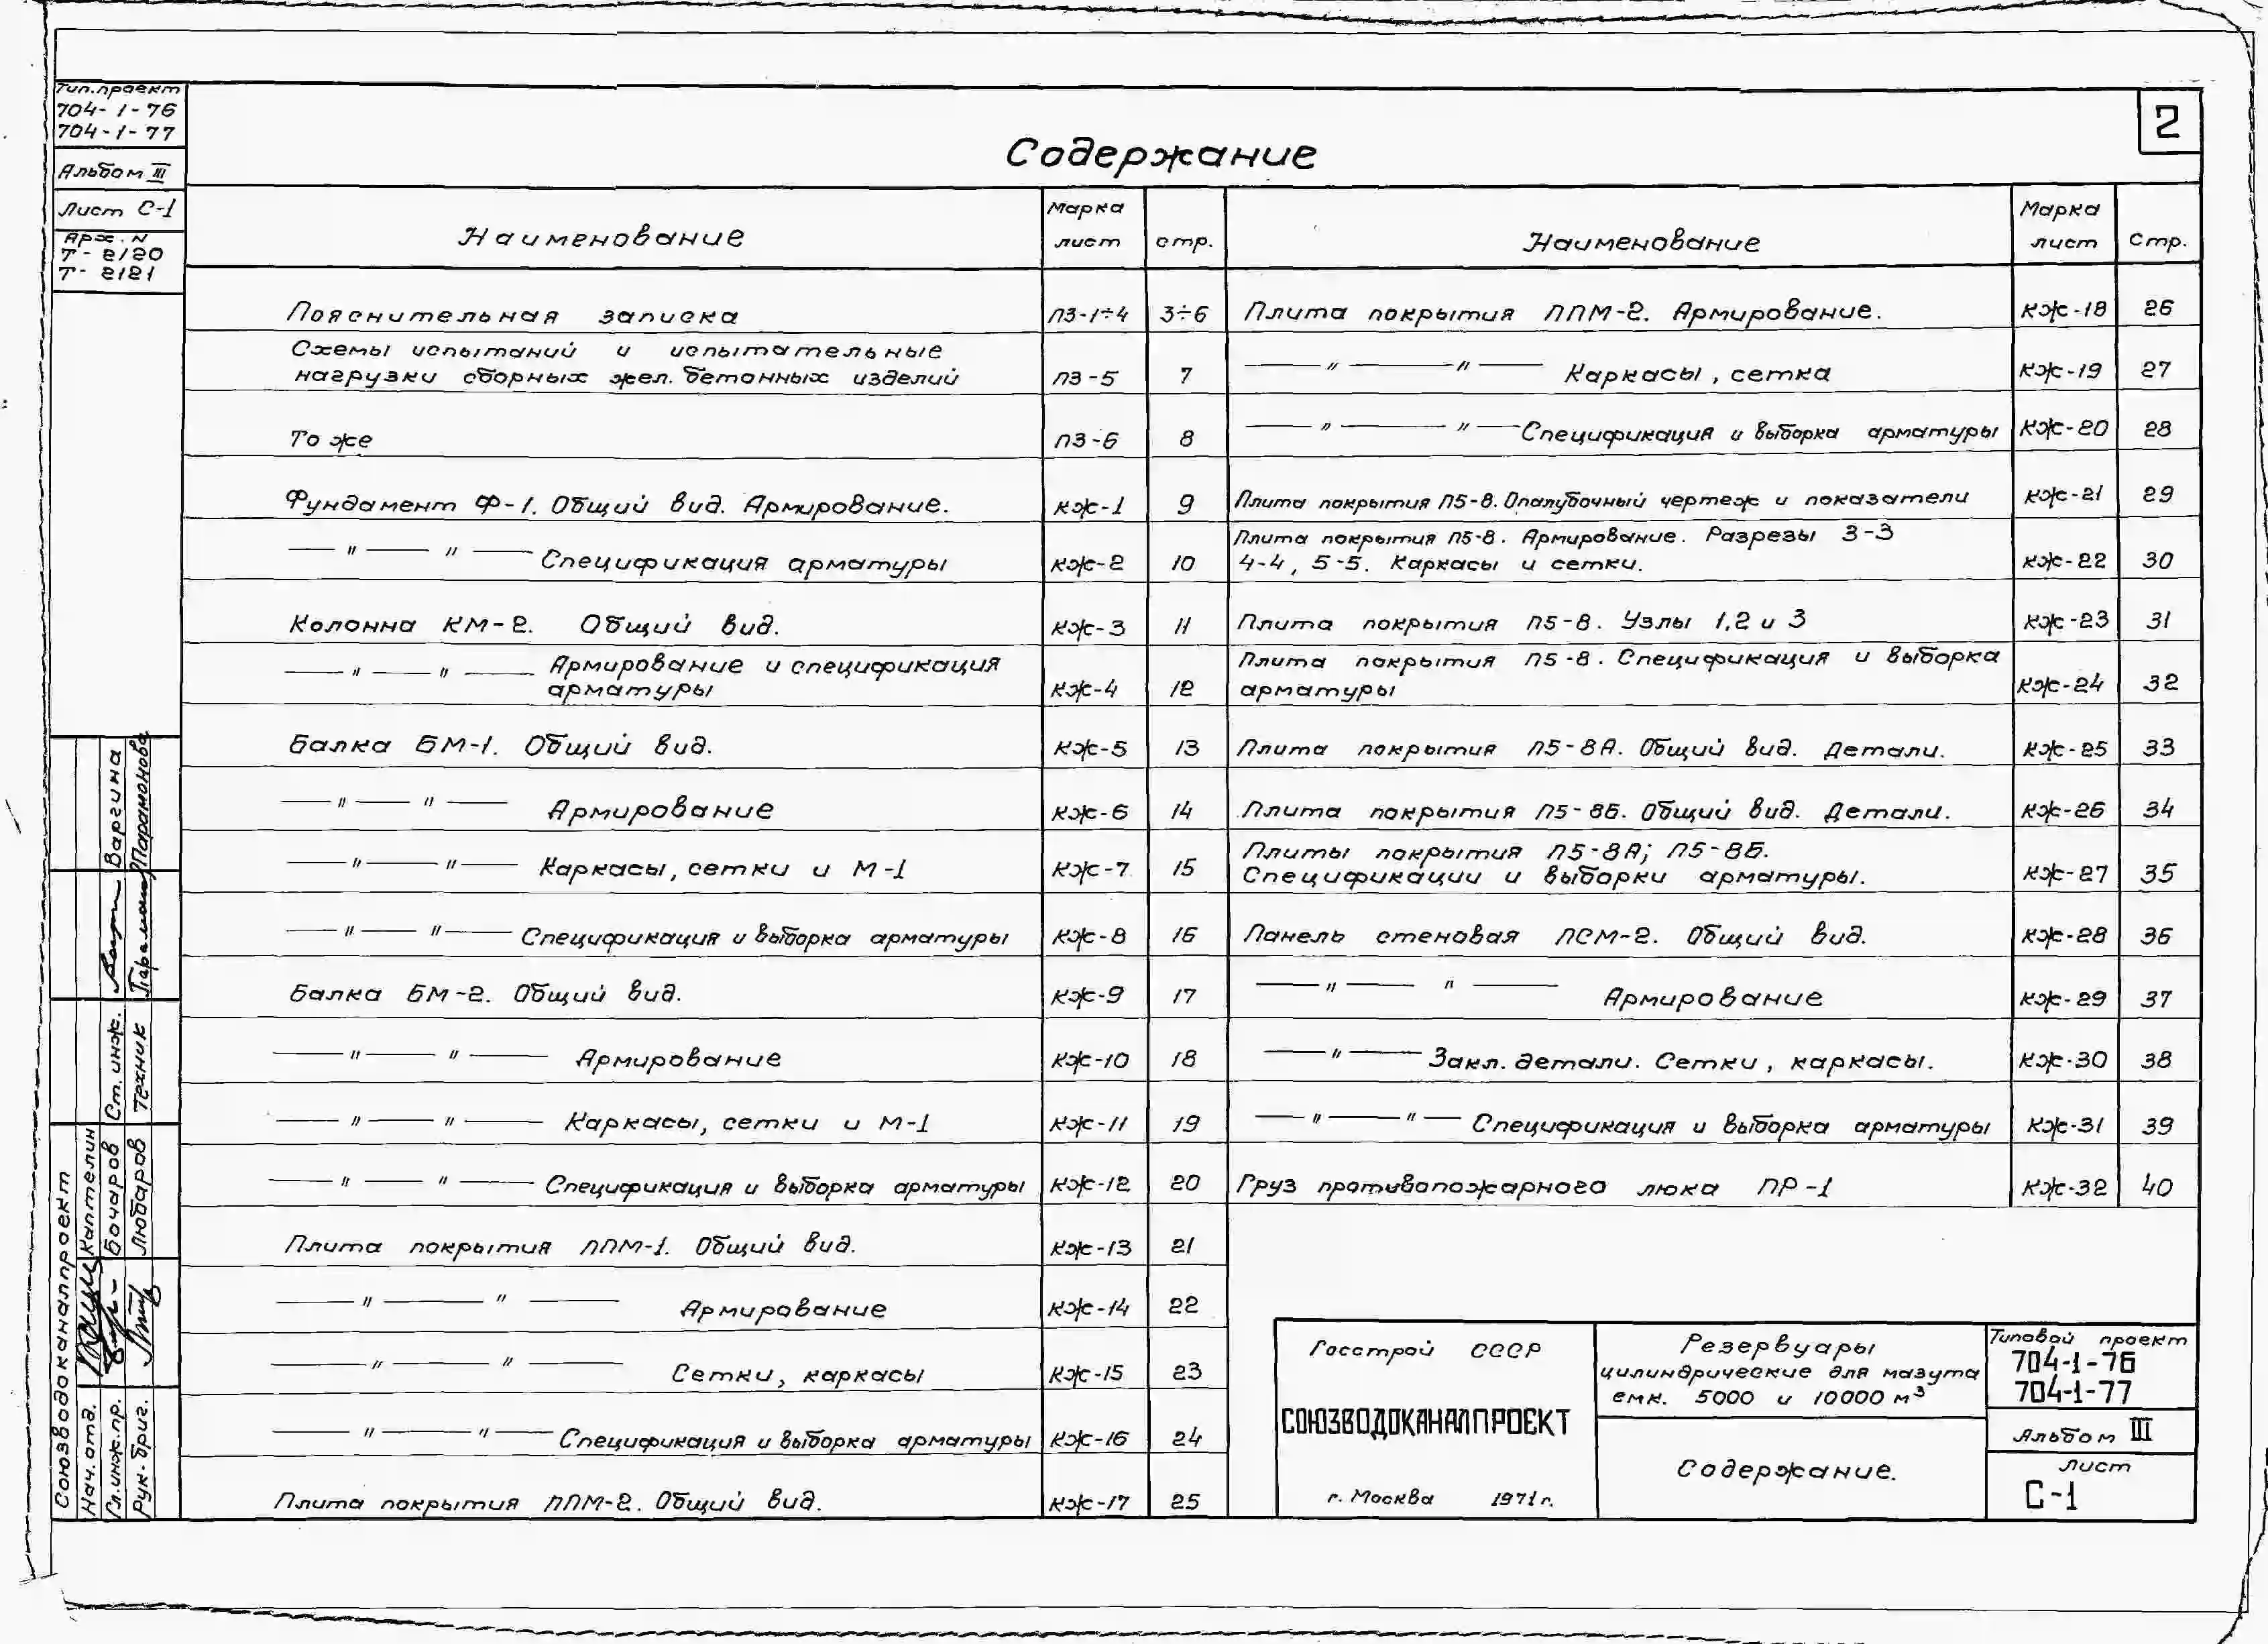 Тип.проект
704-1-76
704-1-77
Альбом III
Лист С-1
Арх. N
Т-2120
Т-2121
2
Содержание
Наименование Марка лист стр.
Пояснительная записка ПЗ-1÷4 3÷6
Схемы испытаний и испытательные
нагрузки сборных жел. бетонных изделий ПЗ-5 7
То же ПЗ-6 8
Фундамент Ф-1. Общий вид. Армирование. КЖ-1 9
— " — " — Спецификация арматуры КЖ-2 10
Колонна КМ-2. Общий вид. КЖ-3 11
— " — " — Армирование и спецификация
арматуры КЖ-4 12
Балка БМ-1. Общий вид. КЖ-5 13
— " — " — Армирование КЖ-6 14
— " — " — Каркасы, сетки и М-1 КЖ-7 15
— " — " — Спецификация и выборка арматуры КЖ-8 16
Балка БМ-2. Общий вид. КЖ-9 17
— " — " — Армирование КЖ-10 18
— " — " — Каркасы, сетки и М-1 КЖ-11 19
— " — " — Спецификация и выборка арматуры КЖ-12 20
Плита покрытия ППМ-1. Общий вид. КЖ-13 21
— " — " — Армирование КЖ-14 22
— " — " — Сетки, каркасы КЖ-15 23
— " — " — Спецификация и выборка арматуры КЖ-16 24
Плита покрытия ППМ-2. Общий вид. КЖ-17 25
Наименование Марка лист Стр.
Плита покрытия ППМ-2. Армирование. КЖ-18 26
— " — " — Каркасы, сетка КЖ-19 27
— " — " — Спецификация и выборка арматуры КЖ-20 28
Плита покрытия П5-8. Опалубочный чертеж и показатели КЖ-21 29
Плита покрытия П5-8. Армирование. Разрезы 3-3
4-4, 5-5. Каркасы и сетки. КЖ-22 30
Плита покрытия П5-8. Узлы 1,2 и 3 КЖ-23 31
Плита покрытия П5-8. Спецификация и выборка
арматуры КЖ-24 32
Плита покрытия П5-8А. Общий вид. Детали. КЖ-25 33
Плита покрытия П5-8Б. Общий вид. Детали. КЖ-26 34
Плиты покрытия П5-8А; П5-8Б.
Спецификации и выборки арматуры. КЖ-27 35
Панель стеновая ПСМ-2. Общий вид. КЖ-28 36
— " — " — Армирование КЖ-29 37
— " — Закл. детали. Сетки, каркасы. КЖ-30 38
— " — " — Спецификация и выборка арматуры КЖ-31 39
Груз противопожарного люка ПР-1 КЖ-32 40
Госстрой СССР
СОЮЗВОДОКАНАЛПРОЕКТ
г. Москва 1971г.
Резервуары
цилиндрические для мазута
емк. 5000 и 10000 м³
Содержание.
Типовой проект
704-1-76
704-1-77
Альбом III
Лист
С-1
Союзводоканалпроект
Нач. отд. Каптелин
Гл.инж.пр. Бочаров Ст.инж. Варгина
Рук.бриг. Любаров Техник Парамонова